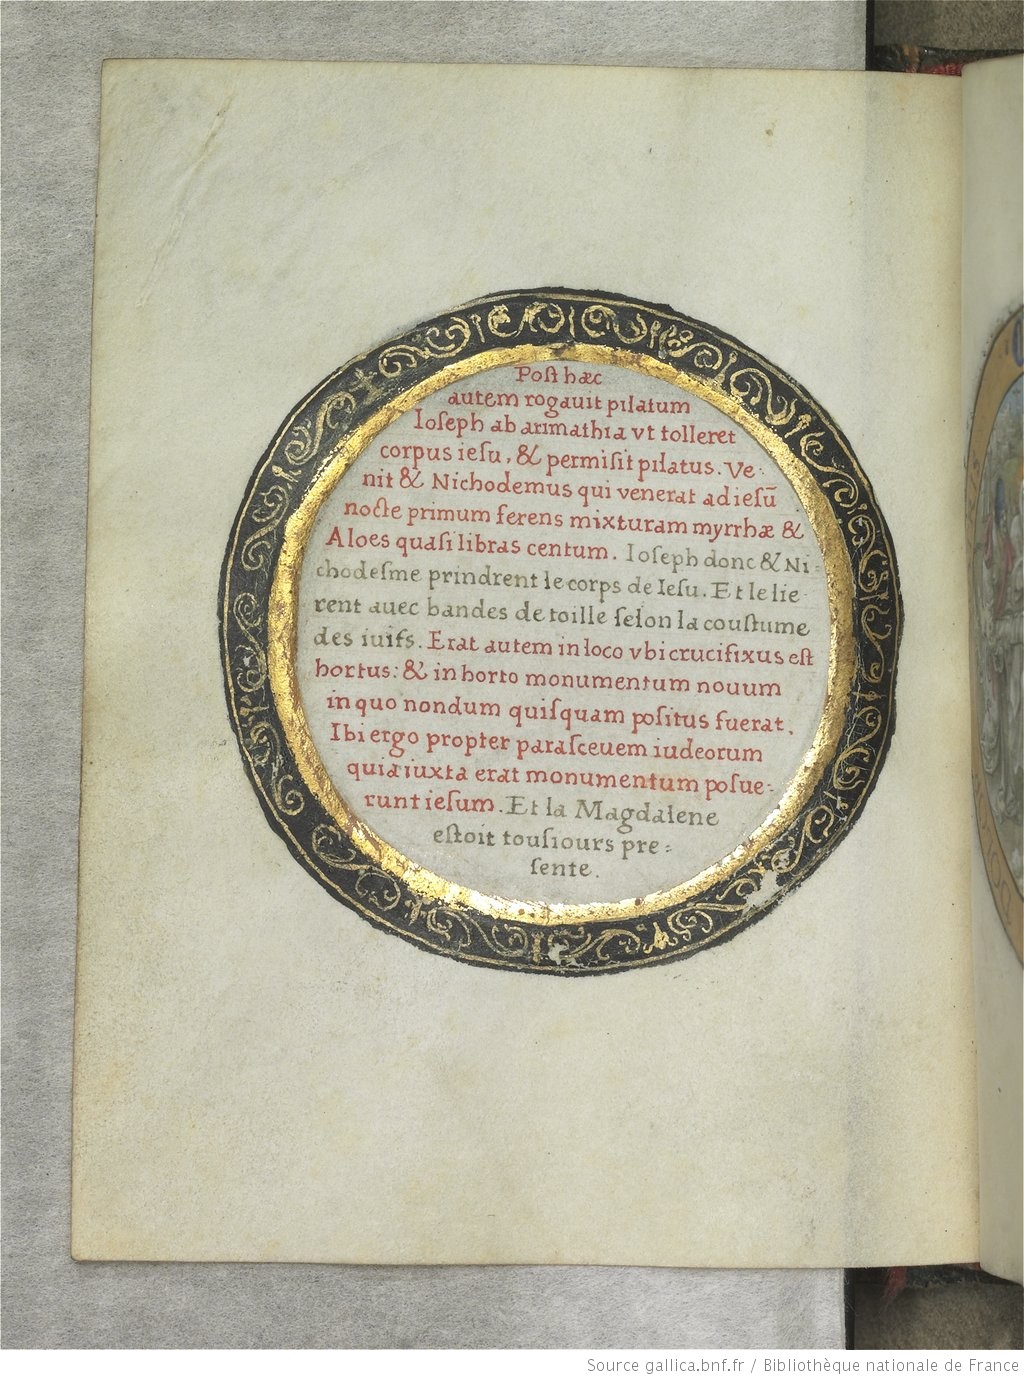 Poſt hæc
autem rogauit pilatum
Ioſeph ab arimathia vt tolleret
corpus ieſu, & permiſit pilatus. Ve-
nit & Nichodemus qui venerat ad ieſũ
nocte primum ferens mixturam myrrhæ &
Aloes quaſi libras centum. Ioſeph donc & Ni-
chodeſme prindrent le corps de Ieſu. Et le lie-
rent auec bandes de toille ſelon la couſtume
des iuifs. Erat autem in loco vbi crucifixus eſt
hortus: & in horto monumentum nouum
in quo nondum quiſquam poſitus fuerat.
Ibi ergo propter paraſceuem iudeorum
quia iuxta erat monumentum poſue-
runt ieſum. Et la Magdalene
eſtoit touſiours pre-
ſente.
Source gallica.bnf.fr / Bibliothèque nationale de France